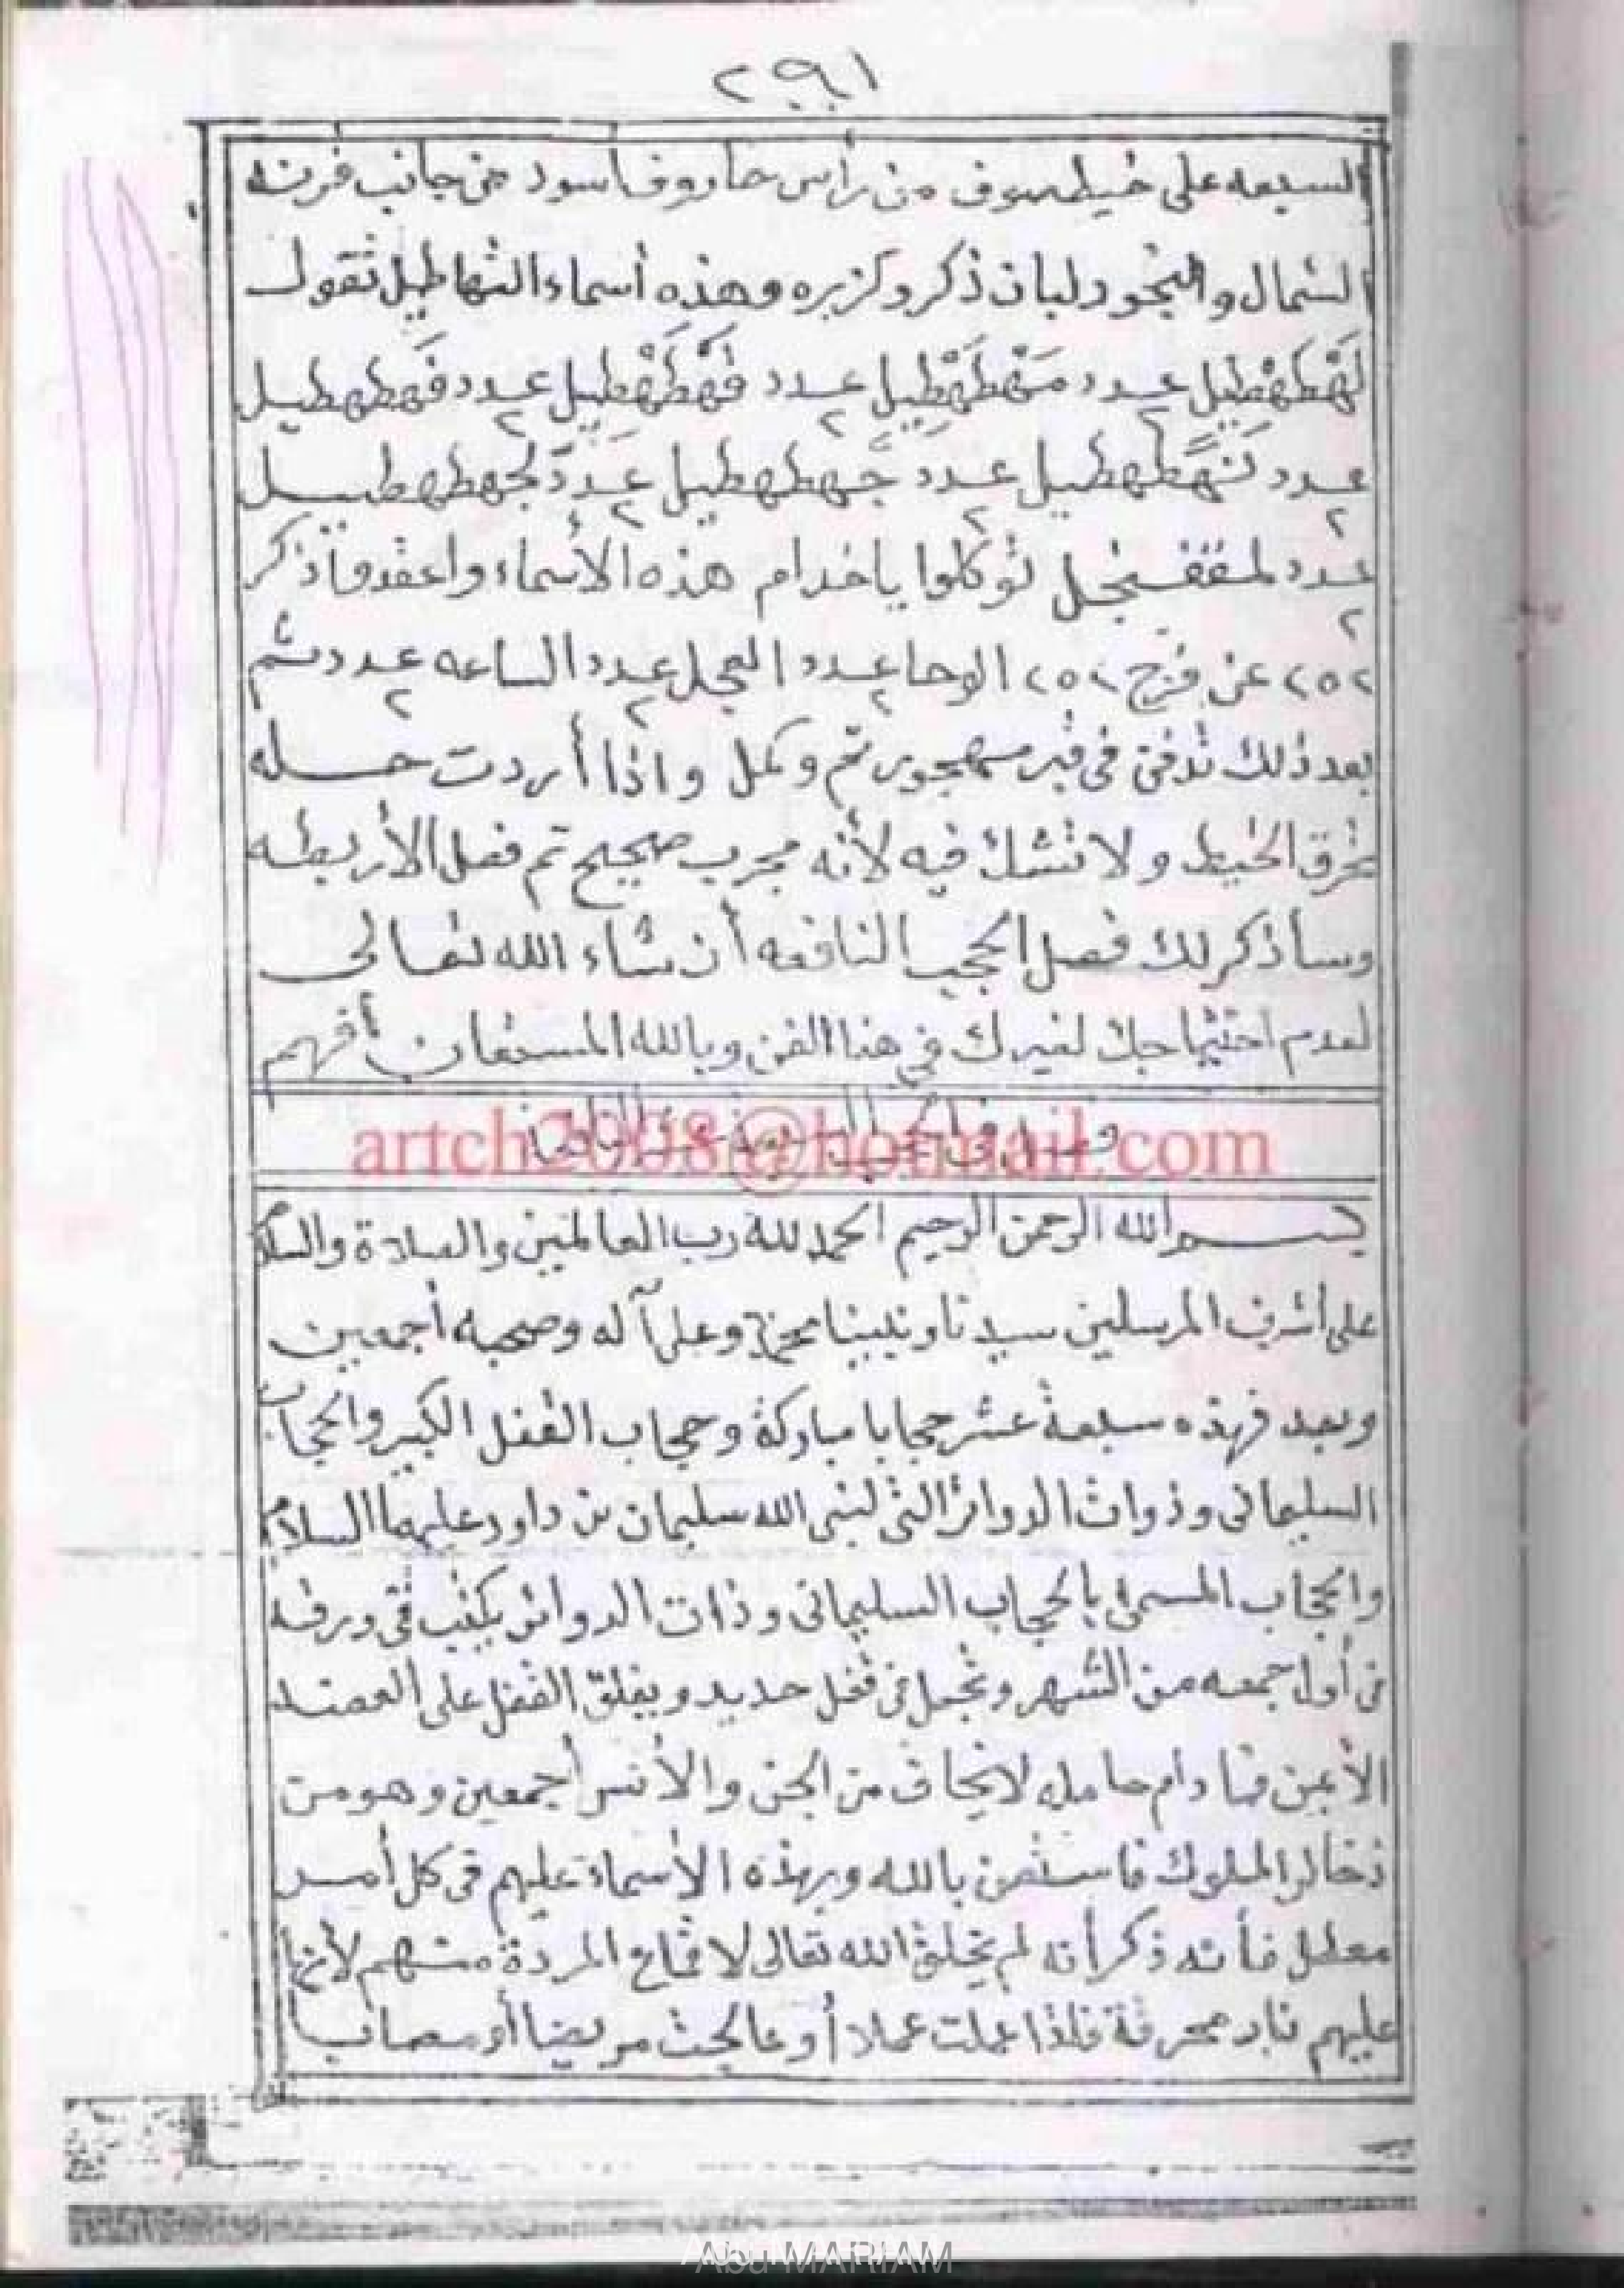 ٢٩١
السبعه على خيط صوف من رأس خاروف اسود من جانب قرنه
الشمال والبخور لبان ذكر وكزبره وهذه أسماء التهاطيل تقول
لَهْطَهْطِيلٍ عدد ٢ مَهْطَهْطِيلٍ عدد ٢ قَهْطَهْطِيلٍ عدد ٢ فَهطهطيل
عدد ٢ نَهَهْطهطيل عدد ٢ جَهطهطيل عدد ٢ لجهطهطيل
عدد ٢ لمقفنجل توكلوا ياخدام هذه الأسماء واعقدوا ذكر
٢٥٢ عن فرج ٢٥٢ الوحا عدد ٢ العجل عدد ٢ الساعه عدد ٢ ثم
بعد ذلك تدفن فى قبر مهجور تم وكمل واذا أردت حله
تحرق الخيط ولا تشك فيه لأنه مجرب صحيح تم فصل الأربطه
وسأذكر لك فصل الحجب النافعه أن شاء الله تعالى
لعدم احتياجك لغيرك في هذا الفن وبالله المستعان أفهم
artch2008@hotmail.com
بسم الله الرحمن الرحيم الحمد لله رب العالمين والصلاة والسلام
على أشرف المرسلين سيدنا ونبينا محمد وعلى آله وصحبه أجمعين
وبعد فهذه سبعة عشر حجابا مباركة وحجاب القفل الكبير والحجاب
السليمانى وذوات الدوائر التى لنبى الله سليمان بن داود عليهما السلام
والحجاب المسمى بالحجاب السليمانى وذات الدوائر يكتب فى ورقه
فى أول جمعه من الشهر وتجعل فى قفل حديد ويغلق القفل على العضد
الأيمن فما دام حامله لايخاف من الجن والأنس أجمعين وهو من
ذخائر الملوك فاستعن بالله وبهذه الأسماء عليهم فى كل أمر
معطل فأنه ذكر أنه لم يخلق الله تعالى لاقماع المردة منهم لأنها
عليهم نار محرقة فلذا عملت عملا أو عالجت مريضا أو مصاب
Abu MARIAM